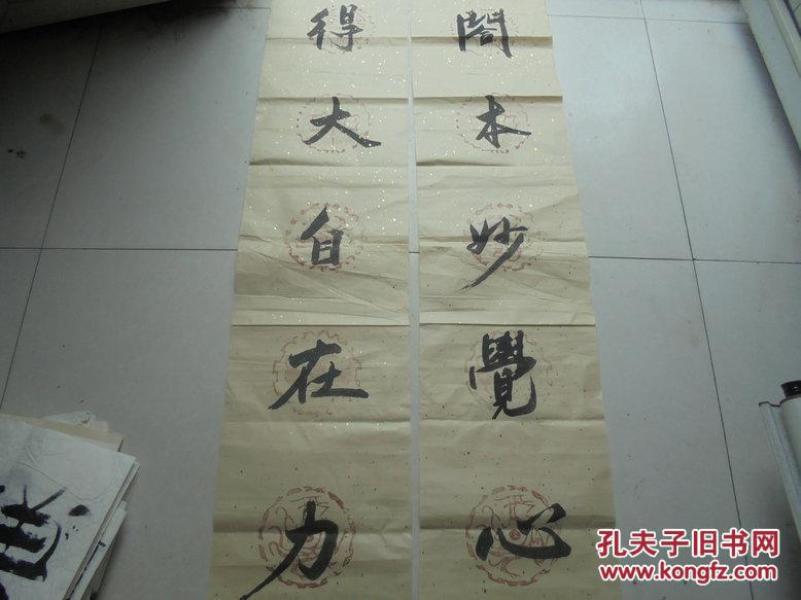 閤本妙覺心
得大自在力
孔夫子旧书网
www.kongfz.com